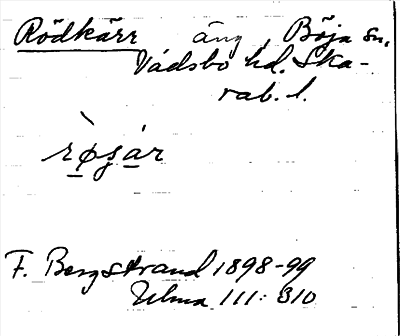 Rödkärr äng, Böja sn,
Vadsbo hd. Ska-
rab. l.
F. Bergstrand 1898-99
Ulma 111: 310